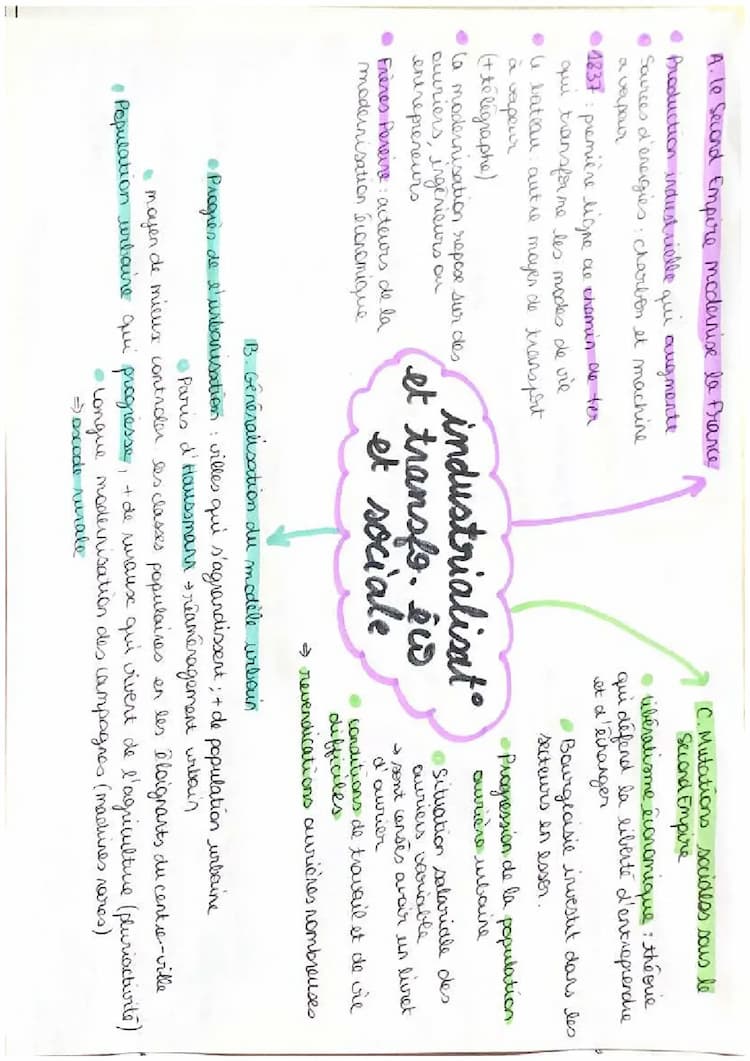 industrialisat°
et transfo. éco
et sociale
A. le Second Empire modernise la France
Production industrielle qui augmente
Sources d'énergies : charbon et machine
à vapeur
1837 : première ligne de chemin de fer
qui transforme les modes de vie
le bateau : autre moyen de transport
à vapeur
(+ télégraphe)
La modernisation repose sur des
ouvriers, ingénieurs ou
entrepreneurs
Frères Pereire : acteurs de la
modernisation économique
B. Généralisation du modèle urbain
Progrès de l'urbanisation : villes qui s'agrandissent ; + de population urbaine
Paris d'Haussmann → réaménagement urbain
moyen de mieux contrôler les classes populaires en les éloignants du centre-ville
Population urbaine qui progresse, + de ruraux qui vivent de l'agriculture (pluriactivité)
Longue modernisation des campagnes (machines rares)
⇒ exode rurale
C. Mutations sociales sous le
Second Empire
libéralisme économique : théorie
qui défend la liberté d'entreprendre
et d'échanger
Bourgeoisie investit dans les
secteurs en essor.
Progression de la population
ouvrière urbaine
Situation salariale des
ouvriers variable
→ sont censés avoir un livret
d'ouvrier
conditions de travail et de vie
difficiles
⇒ revendications ouvrières nombreuses